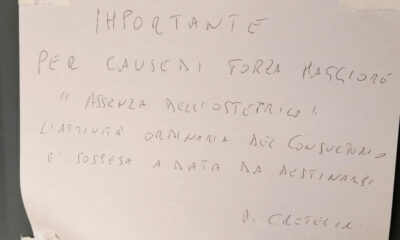 IMPORTANTE
PER CAUSE DI FORZA MAGGIORE
"ASSENZA DELL'OSTETRICA"
L'ATTIVITÀ ORDINARIA DEL CONSULTORIO
E' SOSPESA A DATA DA DESTINARSI